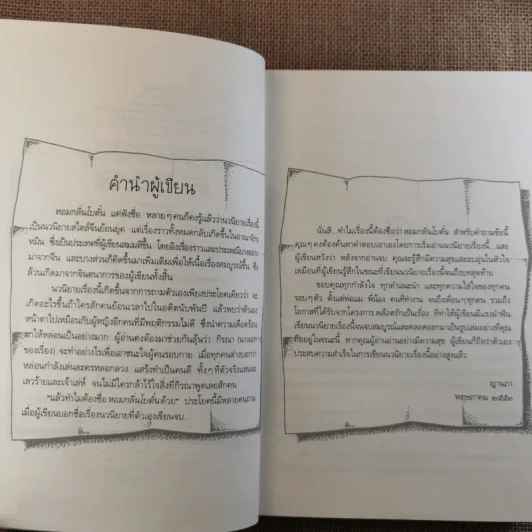 คำนำผู้เขียน
หอมกลิ่นโบตั๋น แค่ฟังชื่อ หลายๆ คนก็คงรู้แล้วว่านวนิยายเรื่องนี้
เป็นนวนิยายสไตล์จีนย้อนยุค แต่เรื่องราวทั้งหมดกลับเกิดขึ้นในอาณาจักร
หมิน ซึ่งเป็นประเทศที่ผู้เขียนสมมติขึ้น โดยอิงเรื่องราวและประเพณีบางอย่าง
มาจากจีน และบางส่วนก็คิดขึ้นมาเพิ่มเติมเพื่อให้เนื้อเรื่องสมบูรณ์ขึ้น ซึ่ง
ล้วนเกิดมาจากจินตนาการของผู้เขียนทั้งสิ้น
นวนิยายเรื่องนี้เกิดขึ้นจากการถามตัวเองเพียงประโยคเดียวว่า จะ
เกิดอะไรขึ้นถ้าใครสักคนย้อนเวลาไปในอดีตนับพันปี แล้วพบว่าตัวเอง
หน้าตาไปเหมือนกับผู้หญิงอีกคนที่มีพฤติกรรมไม่ดี ซึ่งนำความเดือดร้อน
มาให้หล่อนเป็นอย่างมาก ผู้อ่านคงต้องมาช่วยกันลุ้นว่า กิรณา (นางเอก
ของเรื่อง) จะทำอย่างไรเพื่อเอาชนะใจผู้คนรอบกาย เมื่อทุกคนต่างบอกว่า
หล่อนกำลังเล่นละครหลอกลวง แสร้งทำเป็นคนดี ทั้งๆ ที่ตัวจริงแสนจะ
เลวร้ายและเจ้าเล่ห์ จนไม่มีใครกล้าไว้ใจสิ่งที่กิรณาพูดเลยสักคน
"แล้วทำไมต้องชื่อ หอมกลิ่นโบตั๋น ด้วย" ประโยคนี้มีหลายคนถาม
เมื่อผู้เขียนบอกชื่อเรื่องนวนิยายที่ตัวเองเขียนจบ...
นั่นสิ...ทำไมเรื่องนี้ต้องชื่อว่า หอมกลิ่นโบตั๋น สำหรับคำถามข้อนี้
คุณๆ คงต้องค้นหาคำตอบเอาเองโดยการเริ่มอ่านนวนิยายเรื่องนี้...และ
ผู้เขียนหวังว่า หลังจากอ่านจบ คุณจะรู้สึกมีความสุขและอบอุ่นในหัวใจ
เหมือนที่ผู้เขียนรู้สึกในขณะที่เขียนนวนิยายเรื่องนี้จนถึงบทสุดท้าย
ขอบคุณทุกกำลังใจ ทุกคำแนะนำ และทุกความใส่ใจของทุกคน
รอบๆ ตัว ตั้งแต่พ่อแม่ พี่น้อง คนที่ทำงาน จนถึงเพื่อนๆ ทุกคน รวมถึง
โอกาสที่ได้รับจากโครงการ พล็อตรักเป็นเรื่อง ที่ทำให้ผู้เขียนมีแรงมุ่งมั่นพัฒนา
เขียนนวนิยายเรื่องนี้จนจบสมบูรณ์และคลอดออกมาเป็นรูปเล่มอย่างที่คุณ
ถืออยู่ในขณะนี้ หากคุณผู้อ่านอ่านอย่างมีความสุข ผู้เขียนก็ถือว่าตัวเอง
ประสบความสำเร็จในการเขียนนวนิยายเรื่องนี้อย่างสูงแล้ว
ญานภา
พฤษภาคม ๒๕๕๓